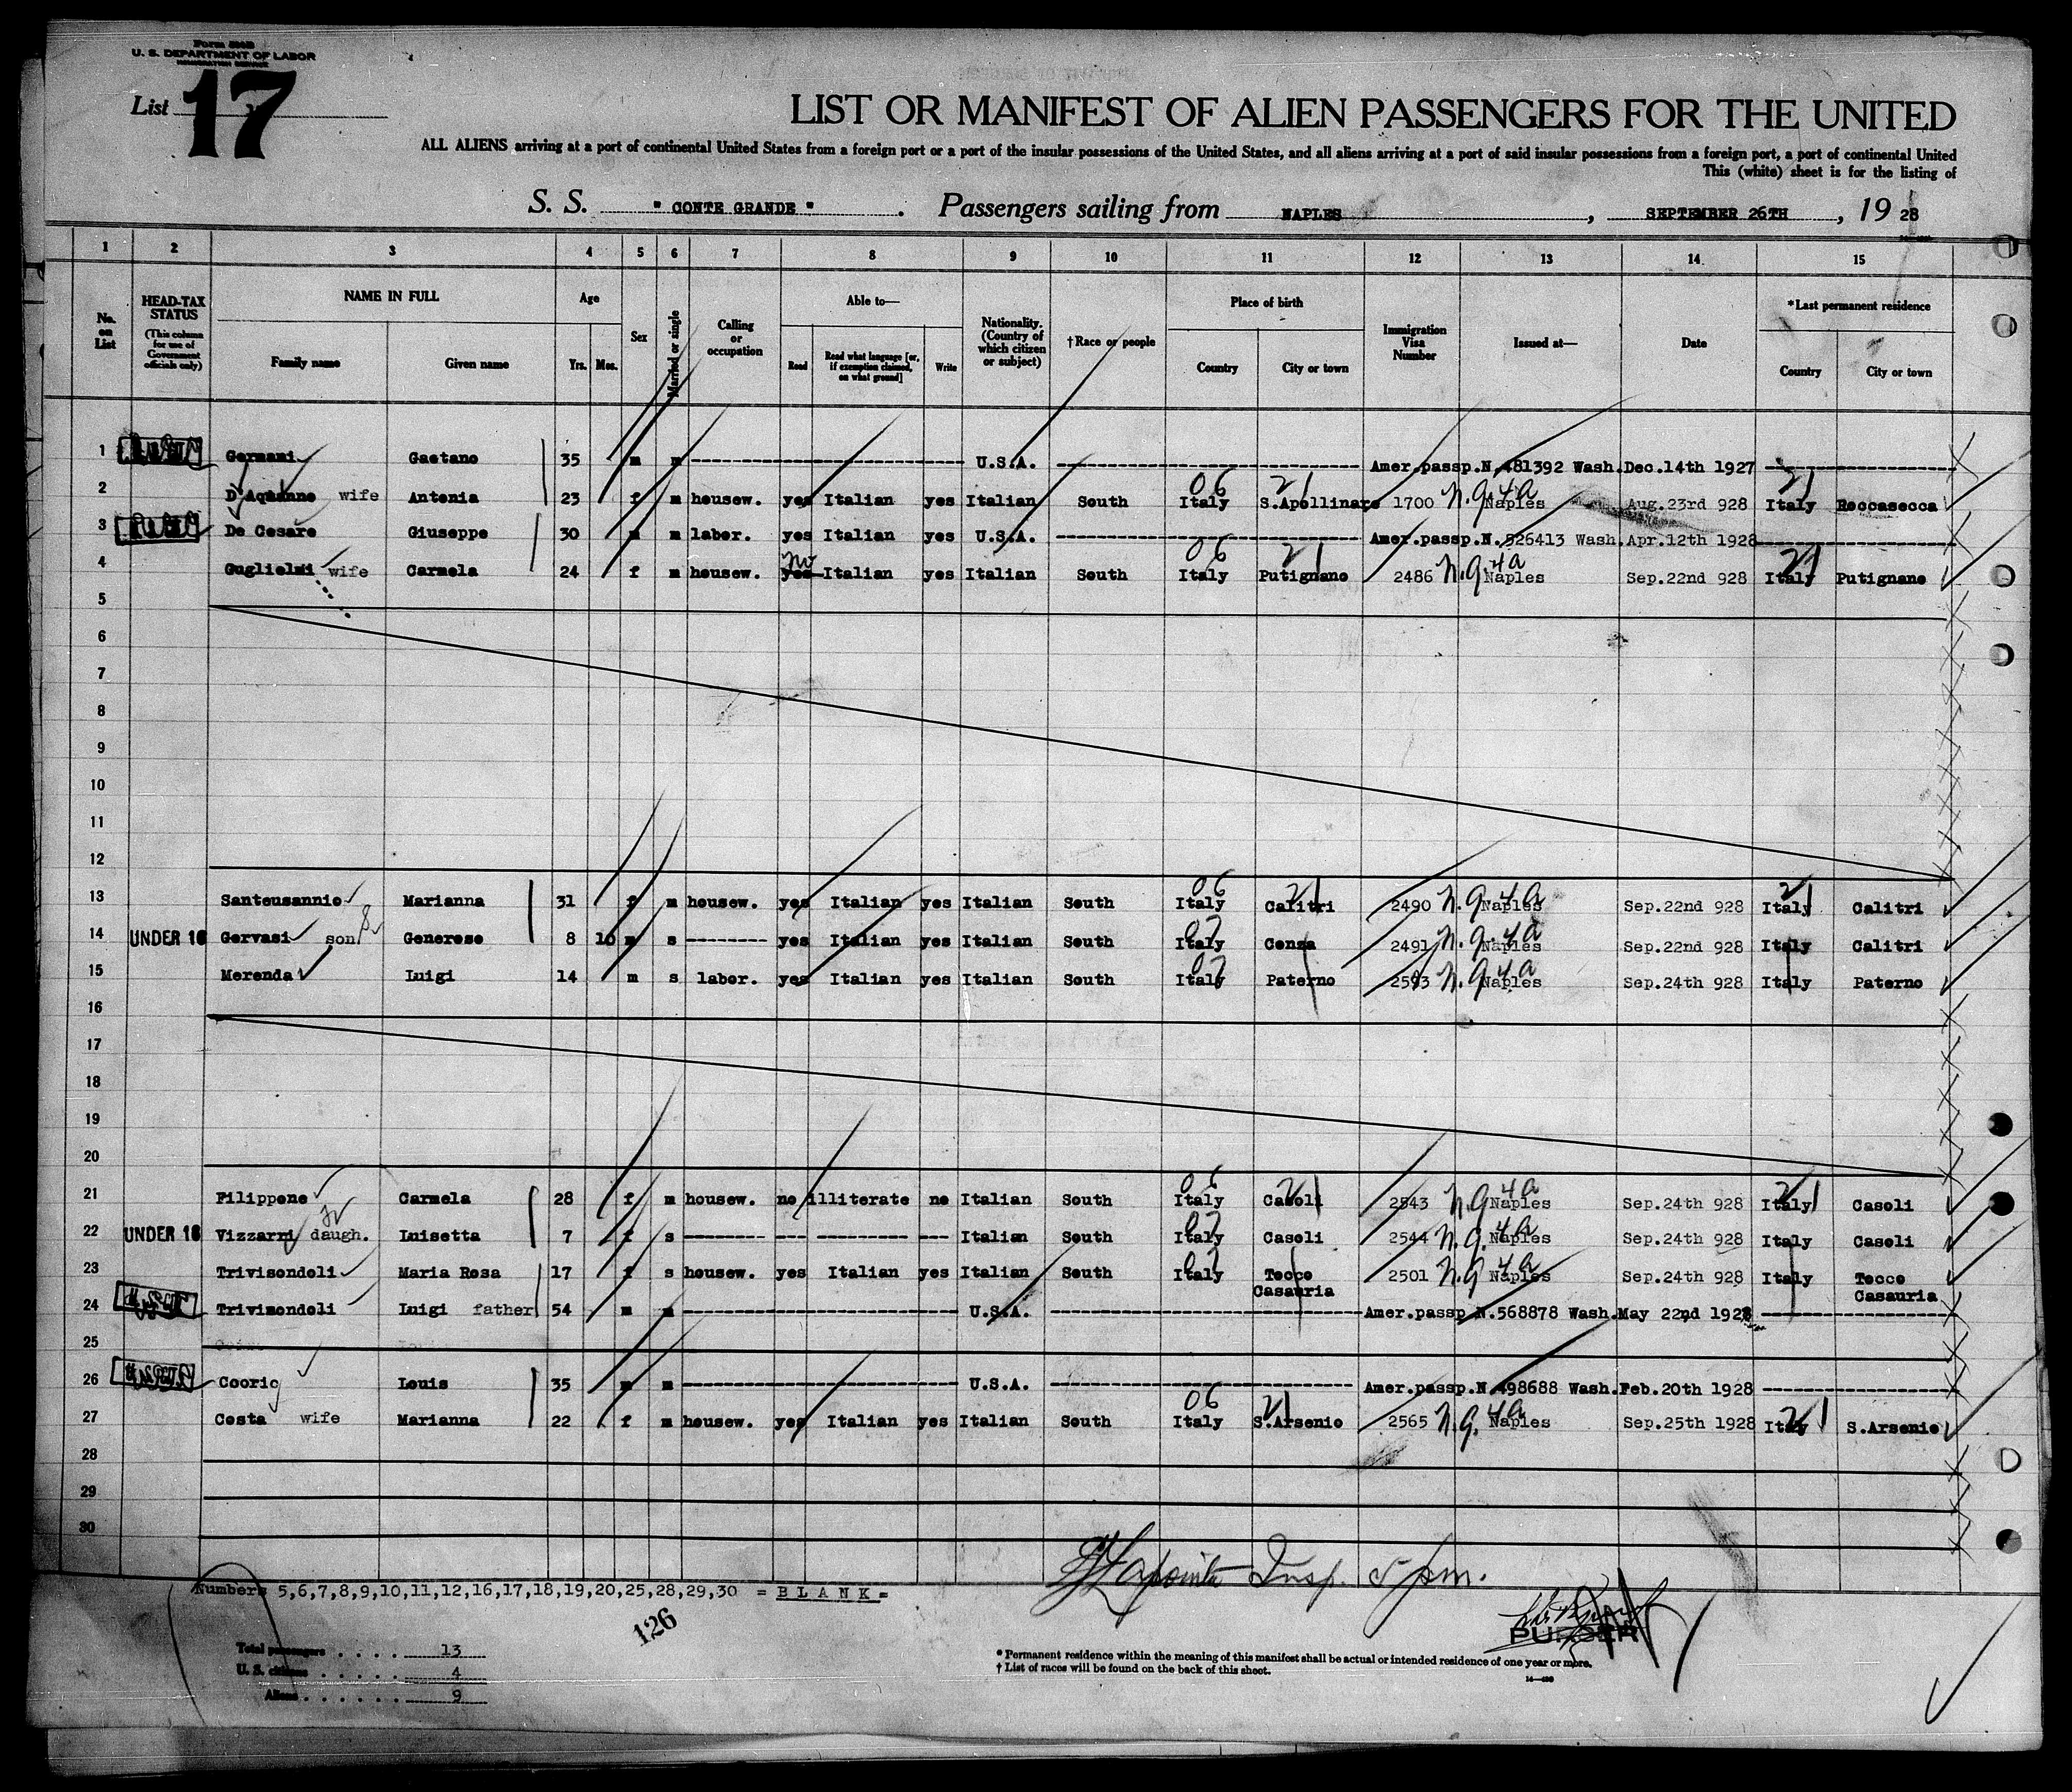 Form 500B
U. S. DEPARTMENT OF LABOR
IMMIGRATION SERVICE
List 17
LIST OR MANIFEST OF ALIEN PASSENGERS FOR THE UNITED
ALL ALIENS arriving at a port of continental United States from a foreign port or a port of the insular possessions of the United States, and all aliens arriving at a port of said insular possessions from a foreign port, a port of continental United
This (white) sheet is for the listing of
S. S. " CONTE GRANDE " . Passengers sailing from NAPLES , SEPTEMBER 26TH , 19 28
1 2 3 4 5 6 7 8 9 10 11 12 13 14 15
No. on List HEAD-TAX STATUS (This column for use of Government officials only) NAME IN FULL Family name Given name Age Yrs. Mos. Sex Married or single Calling or occupation Able to— Read Read what language [or, if exemption claimed, on what ground] Write Nationality. (Country of which citizen or subject) †Race or people Place of birth Country City or town Immigration Visa Number Issued at— Date *Last permanent residence Country City or town
1 Germani Gaetano 35 m m U.S.A. Amer.passp.N.481392 Wash.Dec.14th 1927
2 D'Aquanno wife Antonia 23 f m housew. yes Italian yes Italian South Italy 06 S.Apollinare 21 1700 N.Q.4a Naples Aug.23rd 928 Italy 21 Roccasecca
3 De Cesare Giuseppe 30 m m laber. yes Italian yes U.S.A. Amer.passp.N.526413 Wash.Apr.12th 1928
4 Guglielmi wife Carmela 24 f m housew. yes no Italian yes Italian South Italy 06 Putignano 21 2486 N.Q.4a Naples Sep.22nd 928 Italy 21 Putignano
5
6
7
8
9
10
11
12
13 Santousannio Marianna 31 f m housew. yes Italian yes Italian South Italy 06 Calitri 21 2490 N.Q.4a Naples Sep.22nd 928 Italy 21 Calitri
14 UNDER 16 Gervasi son Generoso 8 10 m s -------- yes Italian yes Italian South Italy 07 Conza 2491 N.Q.4a Naples Sep.22nd 928 Italy Calitri
15 Merenda Luigi 14 m s laber. yes Italian yes Italian South Italy 07 Paterno 2593 N.Q.4a Naples Sep.24th 928 Italy Paterno
16
17
18
19
20
21 Filippone Carmela 28 f m housew. no illiterate no Italian South Italy 06 Casoli 21 2543 N.Q.4a Naples Sep.24th 928 Italy 21 Casoli
22 UNDER 16 Vizzarri daugh. Luisetta 7 f s -------- --- --------- --- Italian South Italy 07 Casoli 2544 N.Q.4a Naples Sep.24th 928 Italy Casoli
23 Trivisondoli Maria Rosa 17 f s housew. yes Italian yes Italian South Italy 07 Tocco Casauria 2501 N.Q.4a Naples Sep.24th 928 Italy Tocco Casauria
24 Trivisondoli Luigi father 54 m m U.S.A. Amer.passp.N.568878 Wash.May 22nd 1928
25
26 Coorig Louis 35 m m U.S.A. Amer.passp.N.498688 Wash.Feb.20th 1928
27 Costa wife Marianna 22 f m housew. yes Italian yes Italian South Italy 06 S.Arsenio 21 2565 N.Q.4a Naples Sep.25th 1928 Italy 21 S.Arsenio
28
29
30
Numbers 5,6,7,8,9,10,11,12,16,17,18,19,20,25,28,29,30 = B L A N K =
Insp. 5 pm.
126
PURSER
Total passengers . . . . 13
U. S. citizens . . . . . 4
Aliens . . . . . . 9
* Permanent residence within the meaning of this manifest shall be actual or intended residence of one year or more.
† List of races will be found on the back of this sheet.